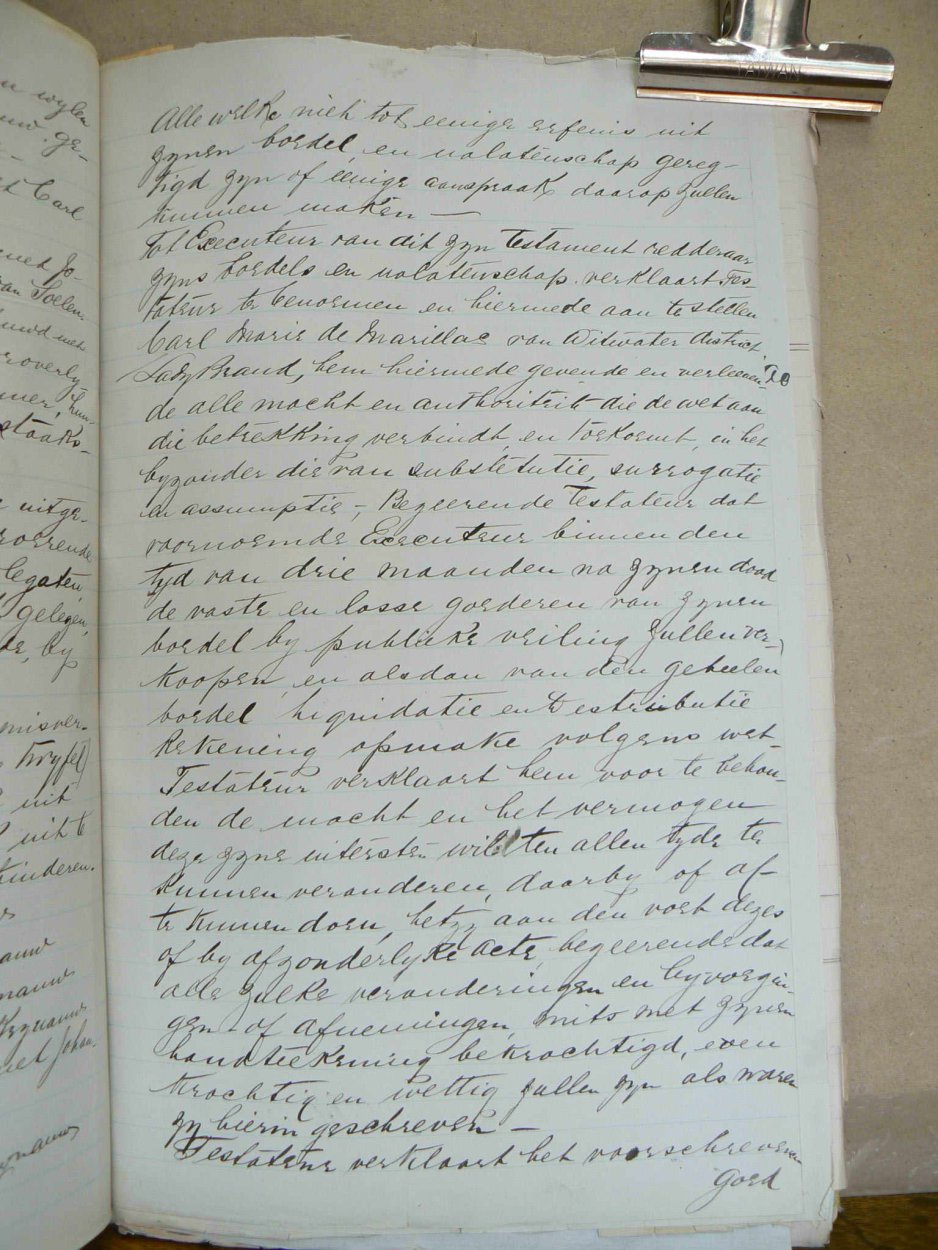 TAIWAN
Alle welke nieh tot eenige erfenis uit
zynen boedel en nalatenschap gereg-
tigd zyn of eenige aanspraak daarop zullen
kunnen maken —
Tot Executeur van dit zyn Testament redderaar
zyns boedels en nalatenschap verklaart Tes-
tateur te benoemen en hiermede aan te stellen
Carl Marie de Marillac van Witwater district
Lady Brand, hem hiermede gevende en verleenen
de alle macht en authoriteit die de wet aan
die betrekking verbindt en toekomt, in het
byzonder die van substitutie, surrogatie
en assumptie, – Begeerende Testateur dat
voornoemde Executeur binnen den
tyd van drie maanden na zynen dood
de vaste en losse goederen van zynen
boedel by publieke veiling zullen ver-
koopen, en alsdan van den geheelen
boedel liquidatie en Destributie
Rekening opmake volgens wet
Testateur verklaart hem voor te behou-
den de macht en het vermogen
deze zyne uiterste wil ten allen tyde te
kunnen veranderen, daarby of af-
te kunnen doen, hetzy aan den voet dezes
of by afzonderlyke acte, begeerende dat
alle zulke veranderingen en byvoegin-
gen of afnemingen, mits met zynen
handteekening bekrachtigd, even
krachtig en wettig zullen zyn als waren
zy hierin geschreven –
Testateur verklaart het voorschreven
Goed
wylen
ge-
Carl
van
uitge-
legaten,
gelegen,
by
misver-
twyfel
uit
kinderen.